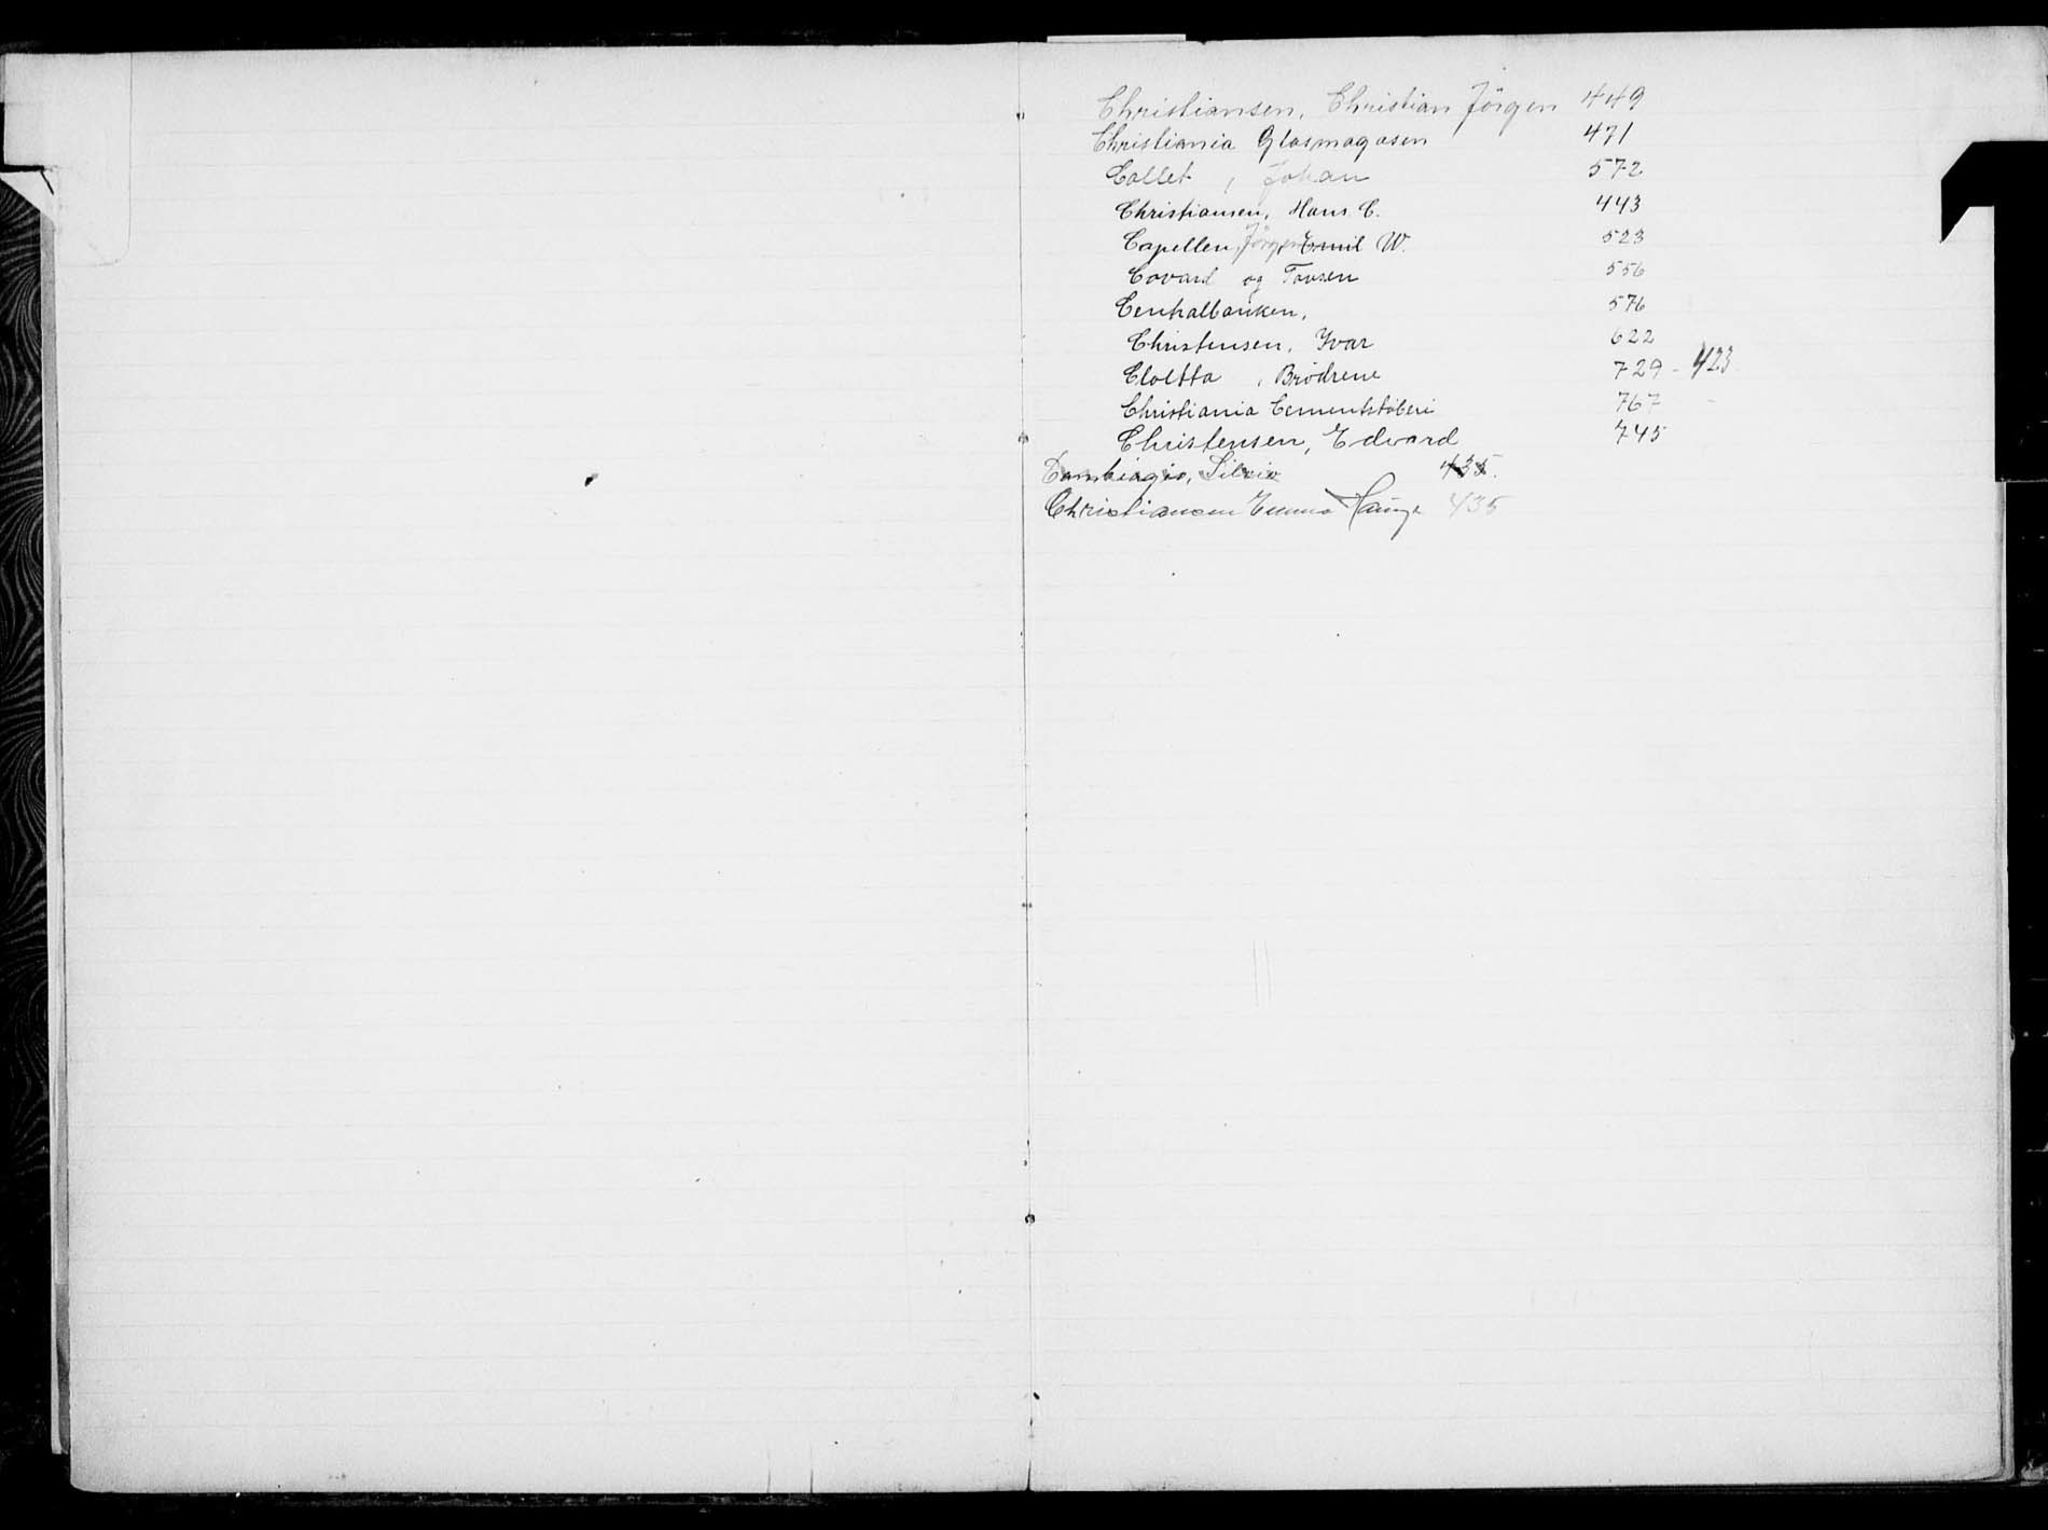 Christiansen, Christian Jörgen 449
Christiania Glasmagasen 471
Collet, Johan 572
Christiansen, Hans C. 443
Capellen, Jörgen Emil W. 523
Covard og 556
Centralbanken, 576
Christensen, Yvar 622
Cloëtta, Brödrene 729 - 423
Christiania Cementstöberi 767
Christensen, Edvard 745
Cambiagio, Silvio 435.
Christiansen Emma Hauge 435